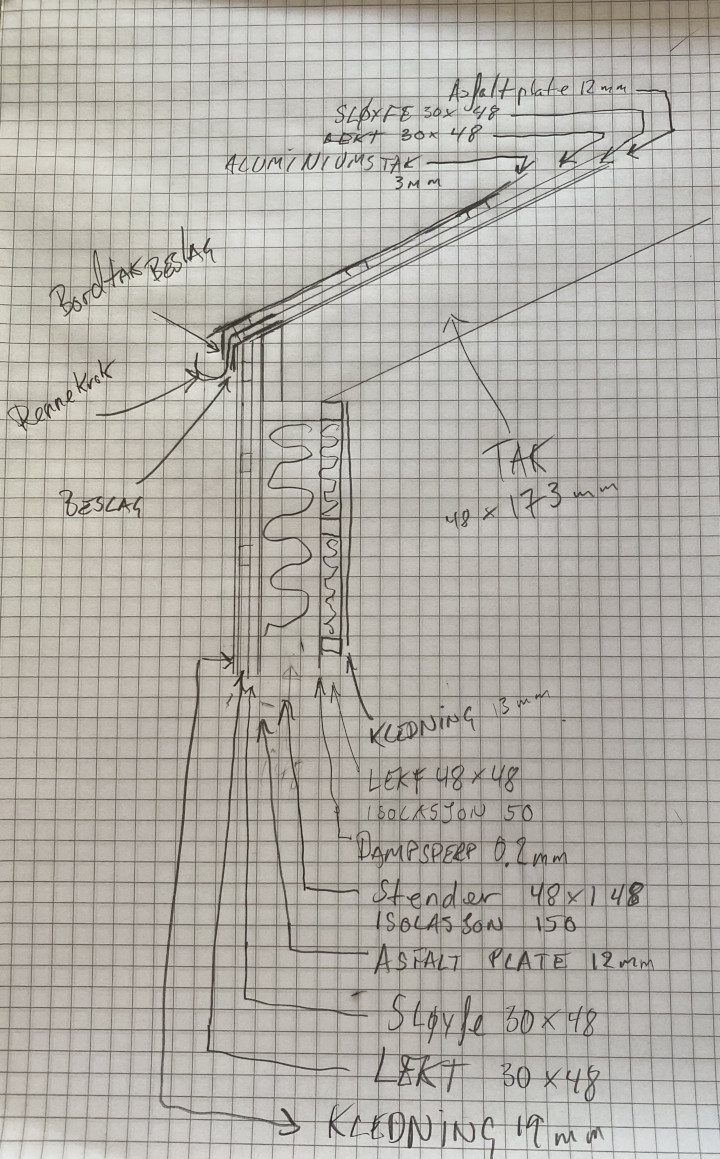 Asfaltplate 12mm
SLØYFE 30x 48
LEKT 30x 48
ALUMINIUMSTAK
3mm
BordtAKBESLAG
RenneKrok
BESLAG
TAK
48 x 173 mm
KLEDNING 13mm
LEKT 48x48
ISOLASJON 50
DAMPSPERR 0,2mm
Stender 48x148
ISOLASJON 150
ASFALT PLATE 12mm
SLØyfe 30x48
LEKT 30x48
KLEDNING 19mm